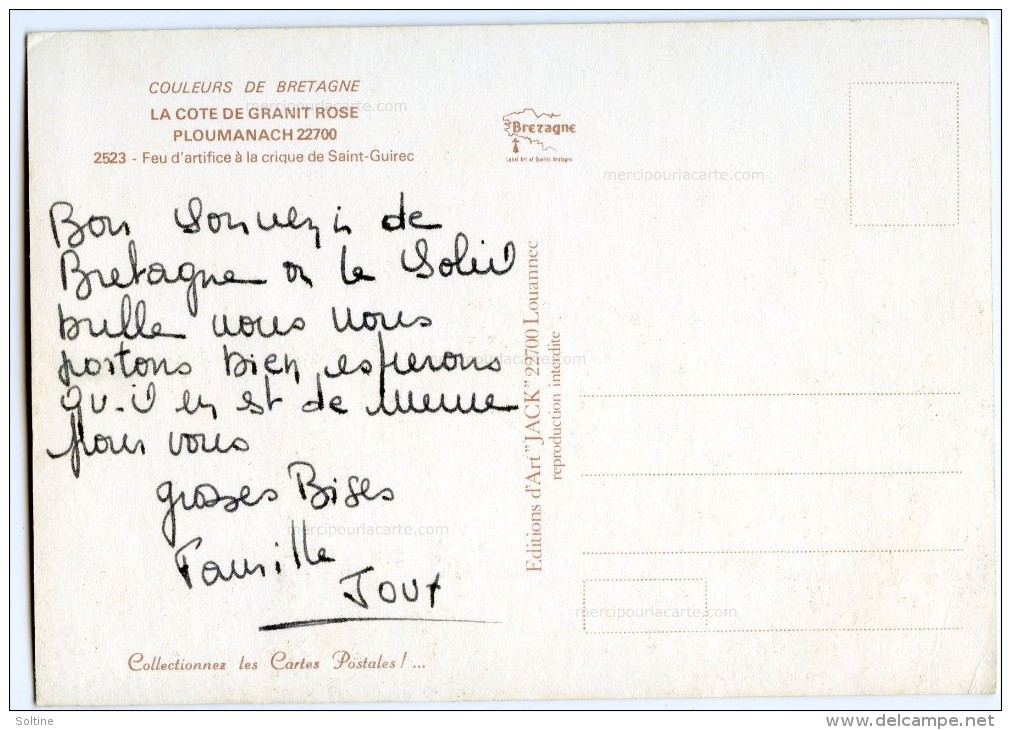 COULEURS DE BRETAGNE
mercipourlacarte.com
LA COTE DE GRANIT ROSE
PLOUMANACH 22700
2523 - Feu d'artifice à la crique de Saint-Guirec
Brezagne
Label Art et Qualité Bretagne
mercipourlacarte.com
Bon Souvenir de
Bretagne ou le Soleil
brille nous nous
portons bien, esperons
qu-il en est de meme
pour vous
mercipourlacarte.com
grosses Bises
mercipourlacarte.com
Famille
Editions d'Art "JACK" 22700 Louannec
reproduction interdite
mercipourlacarte.com
Collectionnez les Cartes Postales ! ...
Soltine
www.delcampe.net